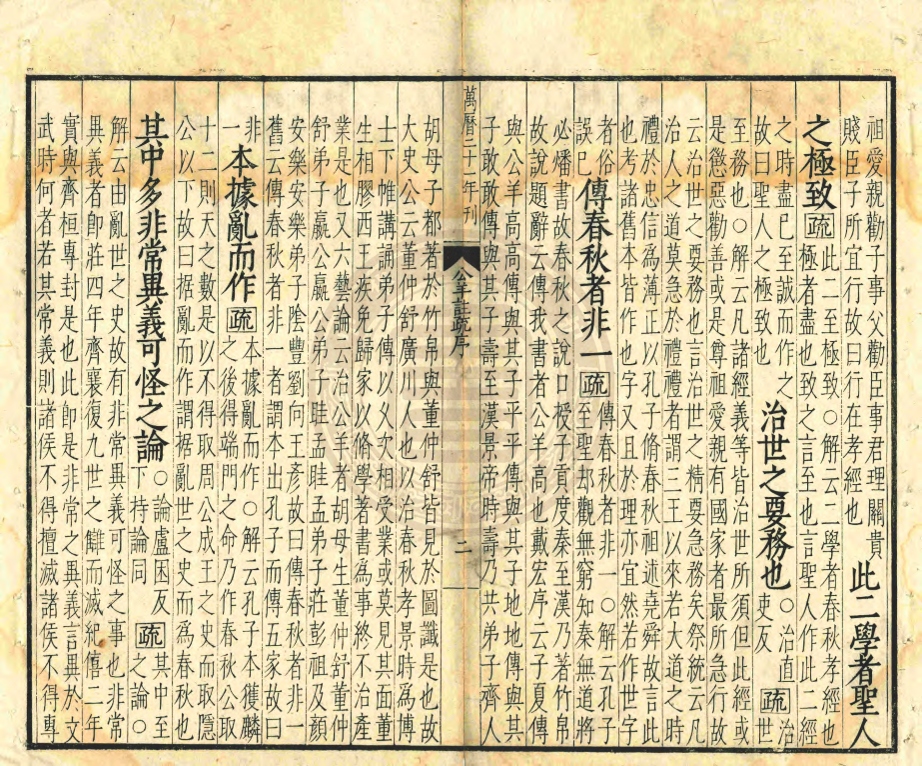 祖愛親勸子事父勸臣事君理關貴
賤臣子所宜行故曰行在孝經也
此二學者聖人
之極致疏
此二至極致○解云二學者春秋孝經也
極者盡也致之言至也言聖人作此二經
之時盡已至誠而作之
故曰聖人之極致也
治世之要務也
○治直
吏反
疏
治
世
至務也○解云凡諸經義等皆治世所須但此經或
是懲惡勸善或是尊祖愛親有國家者最所急行故
云治世之要務也言治世之精要急務矣祭統云凡
治人之道莫急於禮禮者謂三王以來若大道之時
禮於忠信爲薄正以孔子脩春秋祖述堯舜故言此
也考諸舊本皆作也字又且於理亦宜然若作世字
者俗
誤已
傳春秋者非一疏
傳春秋者非一○解云孔子
至聖却觀無窮知秦無道將
必燔書故春秋之說口授子貢度秦至漢乃著竹帛
故說題辭云傳我書者公羊高也戴宏序云子夏傳
與公羊高高傳與其子平平傳與其子地地傳與其
子敢敢傳與其子壽至漢景帝時壽乃共弟子齊人
萬曆二十一年刊
公羊註疏序
二
胡母子都著於竹帛與董仲舒皆見於圖讖是也故
大史公云董仲舒廣川人也以治春秋孝景時爲博
士下帷講誦弟子傳以久次相受業或莫見其面董
生相膠西王疾免歸家以脩學著書爲事終不治產
業是也又六藝論云治公羊者胡母生董仲舒董仲
舒弟子嬴公嬴公弟子眭孟眭孟弟子莊彭祖及顏
安樂安樂弟子陰豐劉向王彥故曰傳春秋者非一
舊云傳春秋者非一者謂本出孔子而傳五家故曰
非
一
本據亂而作疏
本據亂而作○解云孔子本獲麟
之後得端門之命乃作春秋公取
十二則天之數是以不得取周公成王之史而取隱
公以下故曰据亂而作謂据亂世之史而爲春秋也
其中多非常異義可怪之論
○論盧困反
下持論同
疏
其中至
之論○
解云由亂世之史故有非常異義可怪之事也非常
異義者卽莊四年齊襄復九世之讎而滅紀僖二年
實與齊桓專封是也此卽是非常之異義言異於文
武時何者若其常義則諸侯不得擅滅諸侯不得專